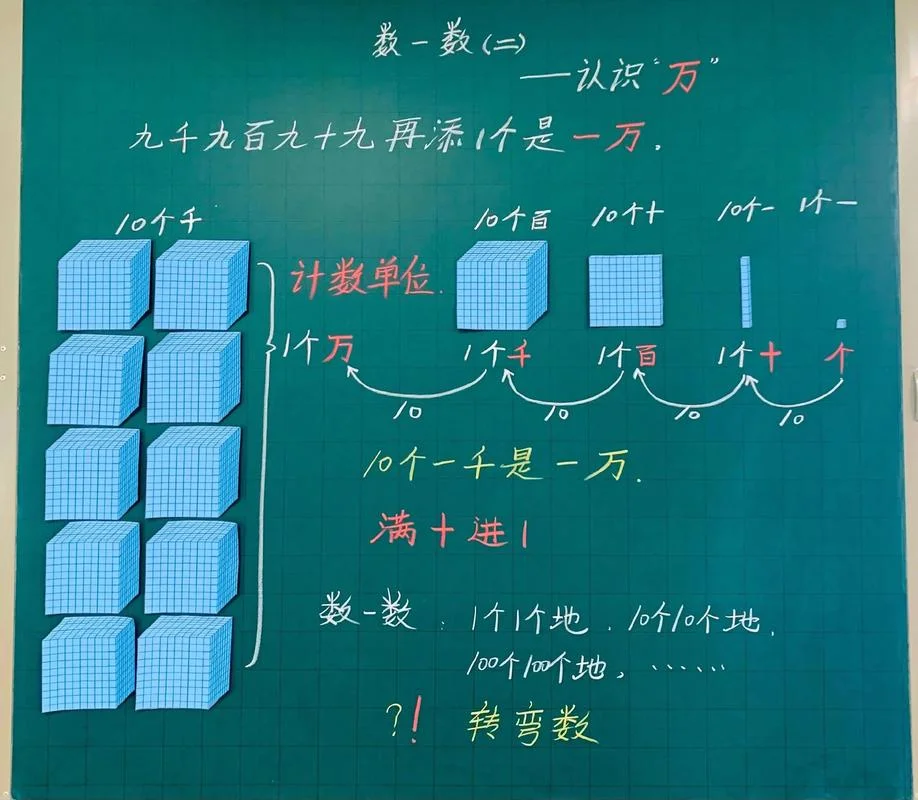 数一数(二)
——认识“万”
九千九百九十九再添1个是一万.
10个千
10个百 10个十 10个一 1个一
计数单位.
1个万 1个千 1个百 1个十 个
10 10 10 10
10个一千是一万.
满十进1
数一数：1个1个地、10个10个地,
100个100个地, ······
?! 转弯数